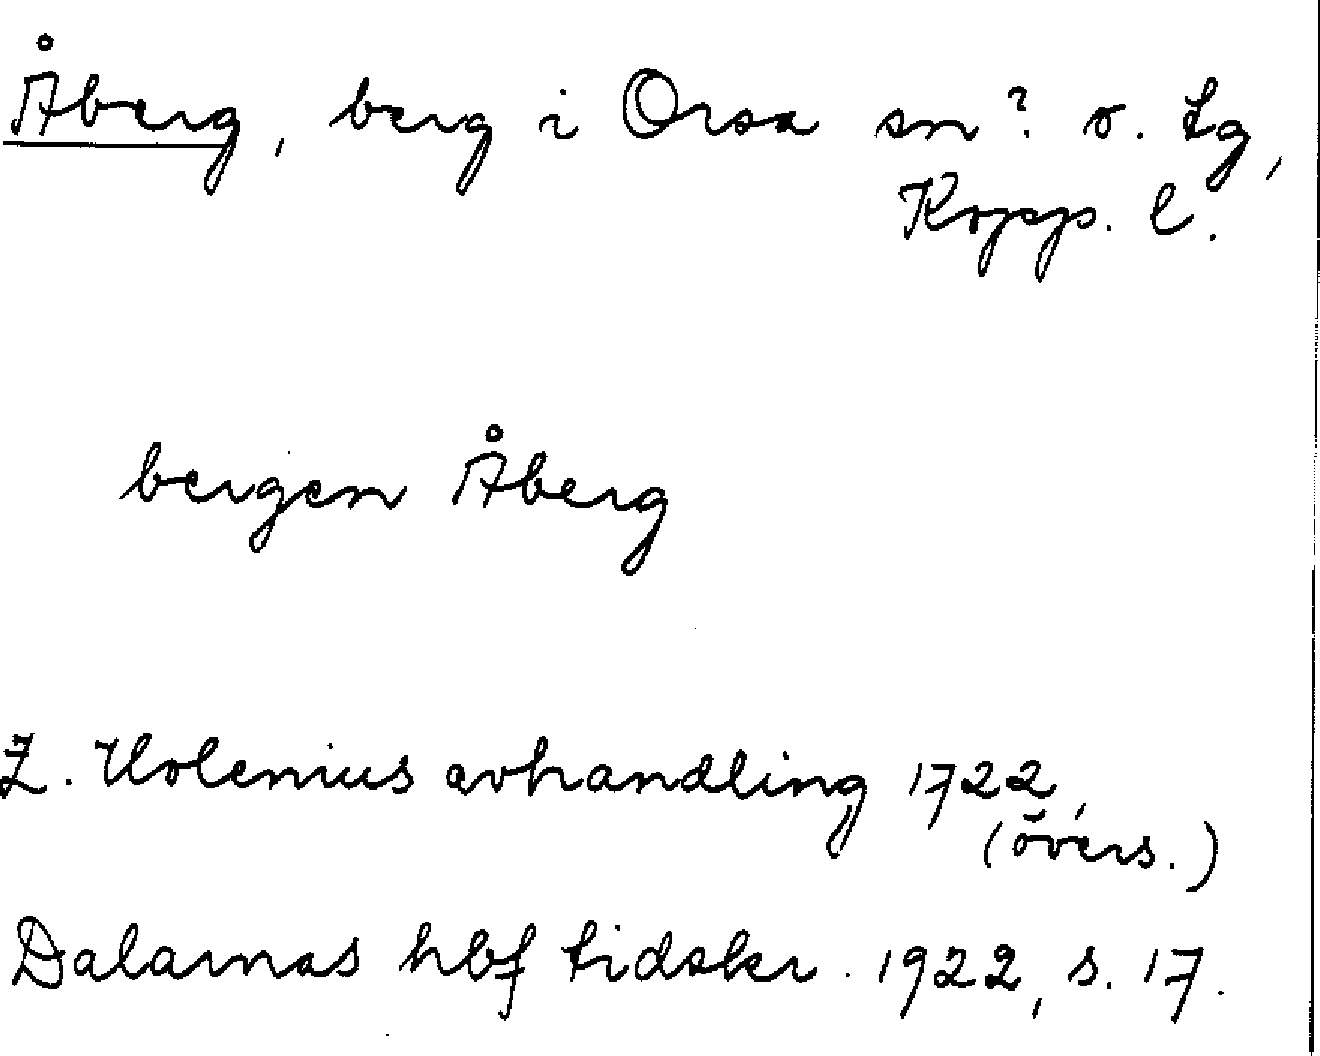 Åberg, berg i Orsa sn? o. tg,
Kopp. l.
bergen Åberg
Z. Holenius avhandling 1722,
(övers.)
Dalarnas hbf tidskr. 1922, s. 17.